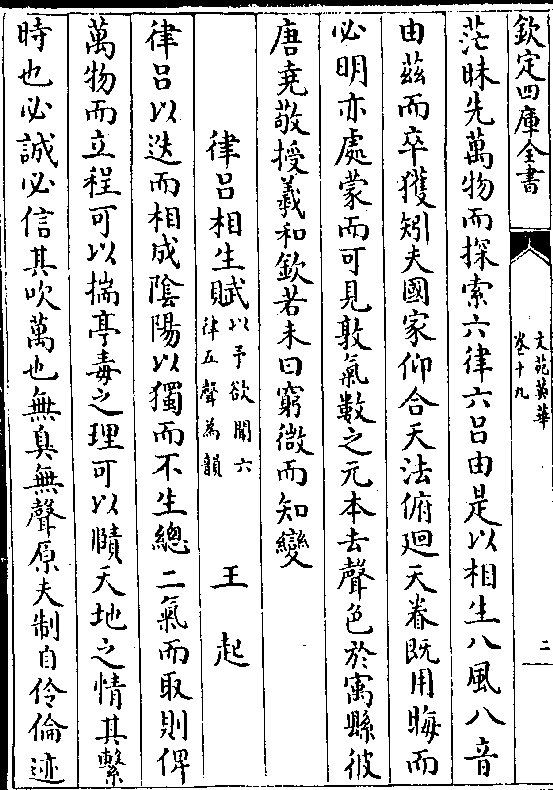 欽定四庫全書
文苑英華
卷十九
二
茫昧先萬物而探索六律六呂由是以相生八風八音
由茲而卒獲矧夫國家仰合天法俯廻天眷既用晦而
必明亦處蒙而可見敦氣數之元本去聲色於寓縣彼
唐堯敬授羲和欽若未曰窮微而知變
律呂相生賦以予欲聞六律五聲為韻 王起
律呂以迭而相成陰陽以獨而不生總二氣而取則俾
萬物而立程可以揣亭毒之理可以賾天地之情其繫
時也必誠必信其吹萬也無臭無聲原夫制自伶倫迹